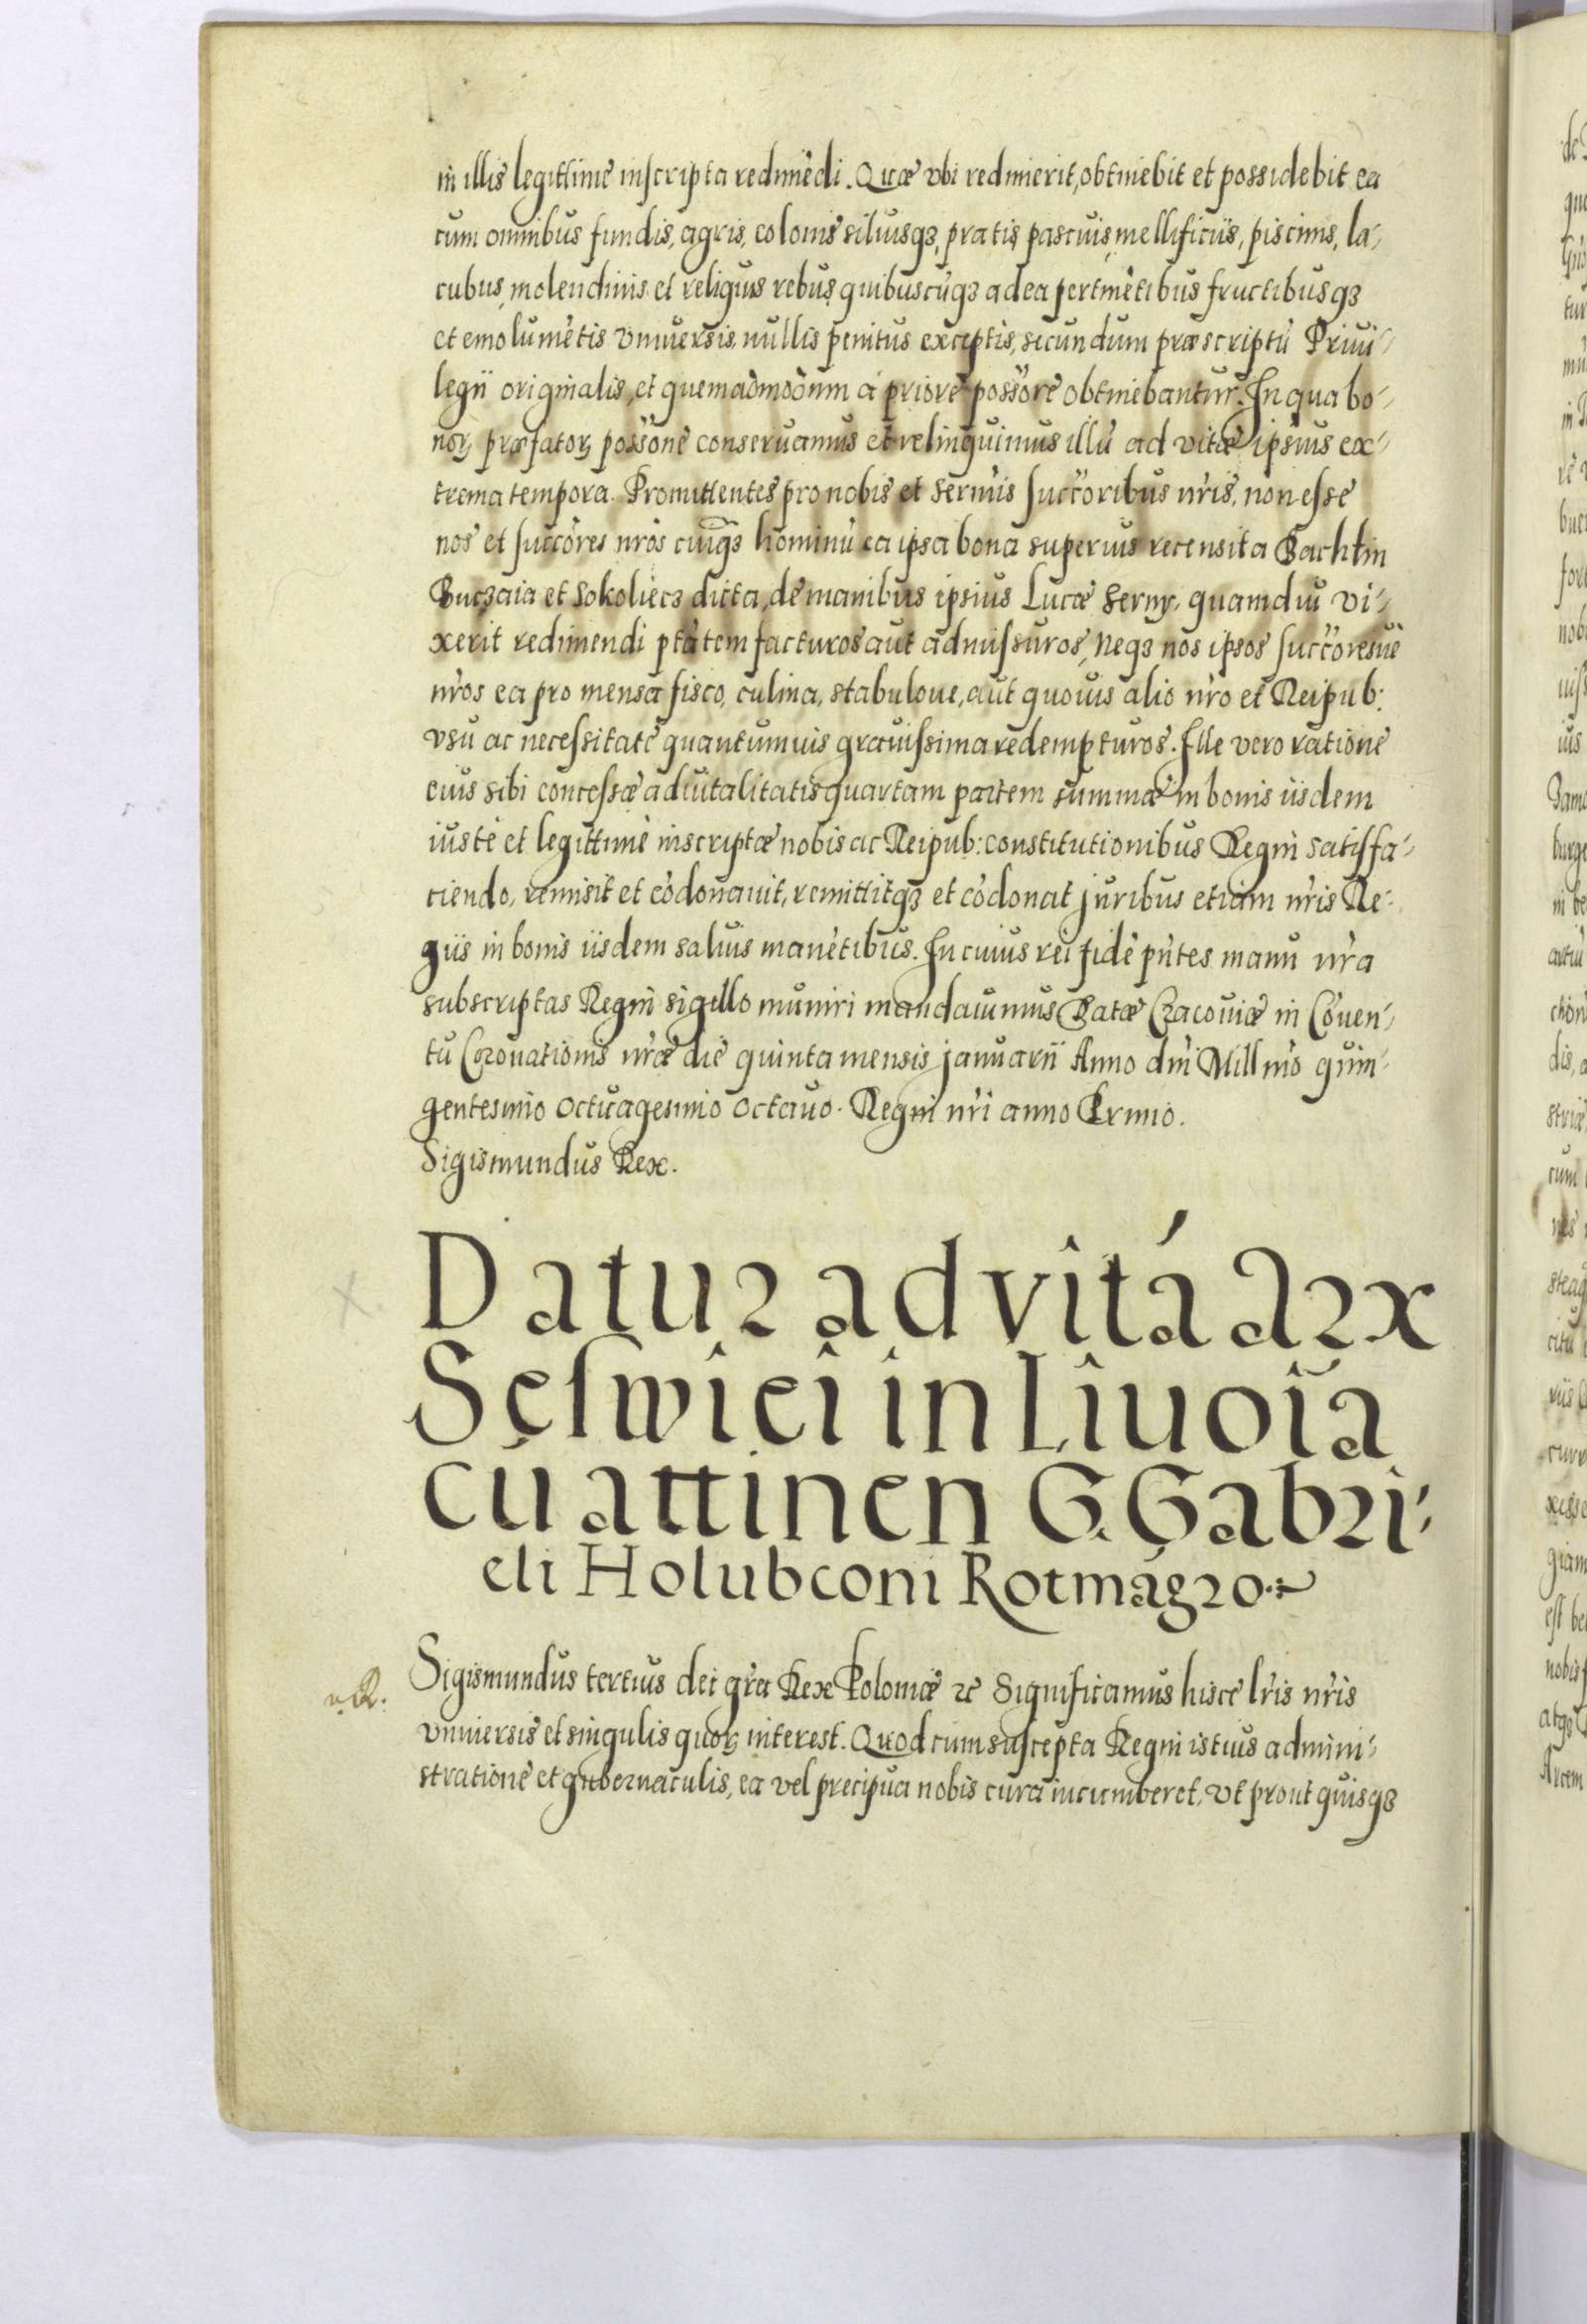 in illis legittime inscripta redimēdi. Quæ vbi redimerit, obtinebit et possidebit ea
cum omnibus fundis, agris, colonis siluisqꝫ, pratis pascuis, mellificiis, piscinis, la-
cubus, molendinis et reliquis rebus, quibuscūqꝫ ad ea pertinētibus fructibusqꝫ
et emolumētis vniuersis, nullis penitus exceptis, secundum præscriptū Priui-
legii originalis, et quemadmodum à priore possōre obtinebantur. In qua bo-
norꝫ præfatorꝫ possōne conseruamus et relinquimus illū ad vitæ ipsius ex-
trema tempora. Promittentes pro nobis et Sermis succ̄oribus nr̄is, non esse
nos et succ̄ores nr̄os cuiqꝫ hominū ea ipsa bona superius recensita Bachtin
Buczaia et Sokoliecz dicta, de manibus ipsius Lucæ Serny, quamdiu vi-
xerit redimendi ptātem facturos aut admissuros, Neqꝫ nos ipsos succ̄oresue
nr̄os ea pro mensa fisco, culina, stabuloue, aut quouis alio nr̄o et Reipub:
vsu ac necessitate quantumuis grauissima redempturos. Ille vero ratione
eius sibi concessæ aduitalitatis quartam partem summæ in bonis iisdem
iuste et legittime inscriptæ nobis ac Reipub: constitutionibus Regni satisfa-
ciendo, remisit et cōdonauit, remittitqꝫ et cōdonat juribus etiam nr̄is Re-
giis in bonis iisdem saluis manētibus. In cuius rei fidē pn̄tes manu nr̄a
subscriptas Regni sigillo muniri mandauimus Datæ Cracouiæ in Cōuen-
tu Coronationis nr̄æ die quinta mensis januarii Anno dn̄i Millmō quin-
gentesimo octuagesimo octauo. Regni nr̄i anno Primo.
Sigismundus Rex.
Datur ad vitā Arx
Seswiei in Liuoīa
cū attinen G. Gabri-
eli Holubconi Rotmāgro
Sigismundus tertius dei gr̄a Rex Poloniæ ꝛc Significamus hisce lr̄is nr̄is
vniuersis et singulis quorꝫ interest. Quod cum suscepta Regni istius admini-
stratione et gubernaculis, ea vel precipua nobis cura incumberet, vt prout quisqꝫ